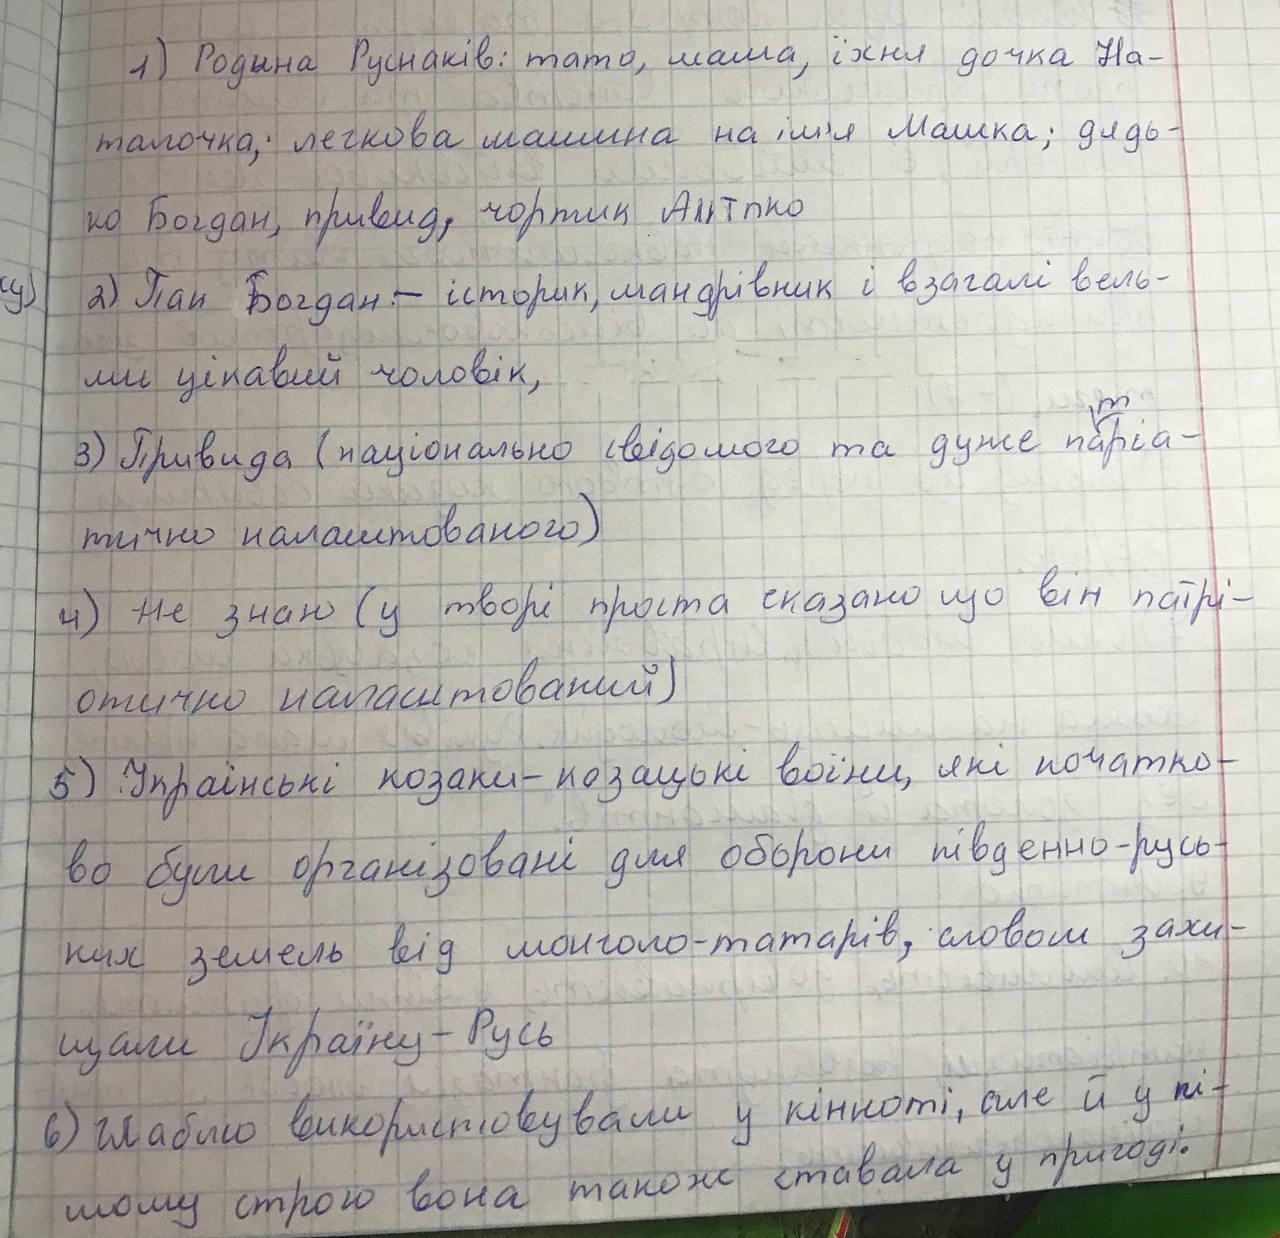 1) Родина Руснаків: тато, мама, їхня дочка На-
талочка; легкова машина на ім'я Машка; дядь-
ко Богдан, привид, чортик Антпко
ку)
2) Пан Богдан – історик, мандрівник і взагалі вель-
ми цікавий чоловік,
т
3) Привида (національно свідомого та дуже паріа-
тично налаштованого)
4) Не знаю (у творі проста сказано що він патрі-
отично налаштований)
5) Українські козаки – козацькі воїни, які початко-
во були організовані для оборони південно-русь-
ких земель від монголо-татарів, словом захи-
щали Україну-Русь
6) Шаблю використовували у кінноті, але й у пі-
шому строю вона також ставала у пригоді.